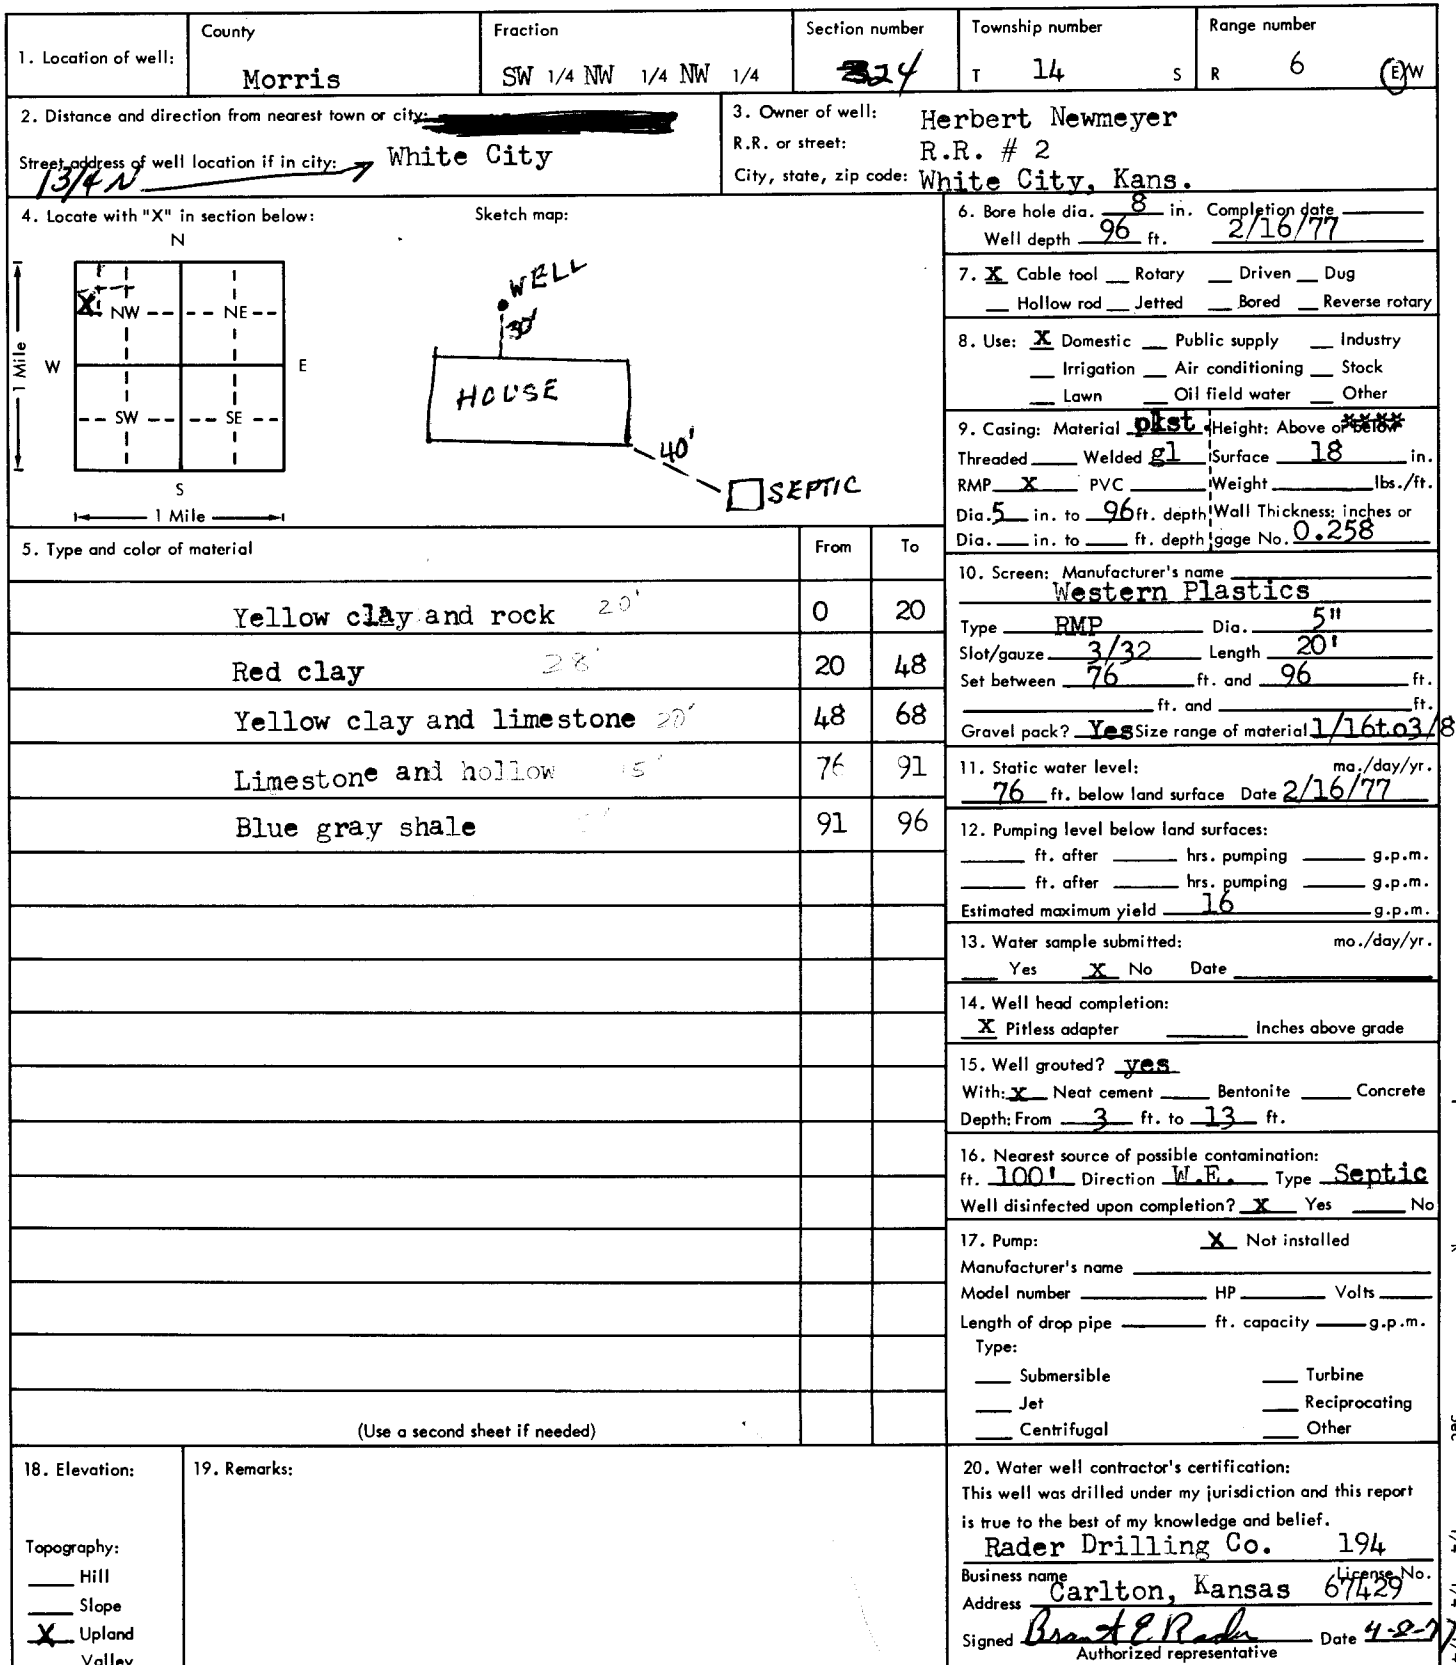 1. Location of well:
County
Morris
Fraction
SW 1/4 NW 1/4 NW 1/4
Section number
24
Township number
T 14 S
Range number
R 6 E/W
2. Distance and direction from nearest town or city:
Street address of well location if in city: White City
1 3/4 N
3. Owner of well: Herbert Newmeyer
R.R. or street: R.R. # 2
City, state, zip code: White City, Kans.
4. Locate with "X" in section below:
N
NW NE
W E
SW SE
S
1 Mile
1 Mile
X
Sketch map:
WELL
30'
HOUSE
40'
SEPTIC
5. Type and color of material From To
Yellow clay and rock 20' 0 20
Red clay 28' 20 48
Yellow clay and limestone 20' 48 68
Limestone and hollow 15' 76 91
Blue gray shale 91 96
(Use a second sheet if needed)
6. Bore hole dia. 8 in. Completion date
Well depth 96 ft. 2/16/77
7. X Cable tool Rotary Driven Dug
Hollow rod Jetted Bored Reverse rotary
8. Use: X Domestic Public supply Industry
Irrigation Air conditioning Stock
Lawn Oil field water Other
9. Casing: Material pkst. Height: Above or below
Threaded Welded gl Surface 18 in.
RMP X PVC Weight lbs./ft.
Dia. 5 in. to 96 ft. depth Wall Thickness: inches or
Dia. in. to ft. depth gage No. 0.258
10. Screen: Manufacturer's name
Western Plastics
Type RMP Dia. 5"
Slot/gauze 3/32 Length 20'
Set between 76 ft. and 96 ft.
ft. and ft.
Gravel pack? Yes Size range of material 1/16to3/8
11. Static water level: mo./day/yr.
76 ft. below land surface Date 2/16/77
12. Pumping level below land surfaces:
ft. after hrs. pumping g.p.m.
ft. after hrs. pumping g.p.m.
Estimated maximum yield 16 g.p.m.
13. Water sample submitted: mo./day/yr.
Yes X No Date
14. Well head completion:
X Pitless adapter Inches above grade
15. Well grouted? yes
With: X Neat cement Bentonite Concrete
Depth: From 3 ft. to 13 ft.
16. Nearest source of possible contamination:
ft. 100' Direction W.E. Type Septic
Well disinfected upon completion? X Yes No
17. Pump: X Not installed
Manufacturer's name
Model number HP Volts
Length of drop pipe ft. capacity g.p.m.
Type:
Submersible Turbine
Jet Reciprocating
Centrifugal Other
18. Elevation:
Topography:
Hill
Slope
X Upland
Valley
19. Remarks:
20. Water well contractor's certification:
This well was drilled under my jurisdiction and this report
is true to the best of my knowledge and belief.
Rader Drilling Co. 194
Business name License No.
Address Carlton, Kansas 67429
Signed Brant E Rader Date 4-8-77
Authorized representative